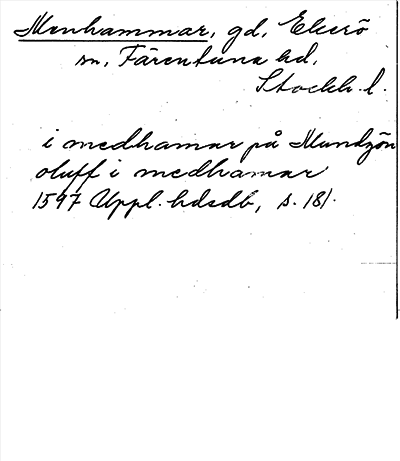 Menhammar, gd, Ekerö
sn, Färentuna hd,
Stockh. l.
i medhamar på Mundzön
oluff i medhamar
1597 Uppl. hdsdb, s. 181.